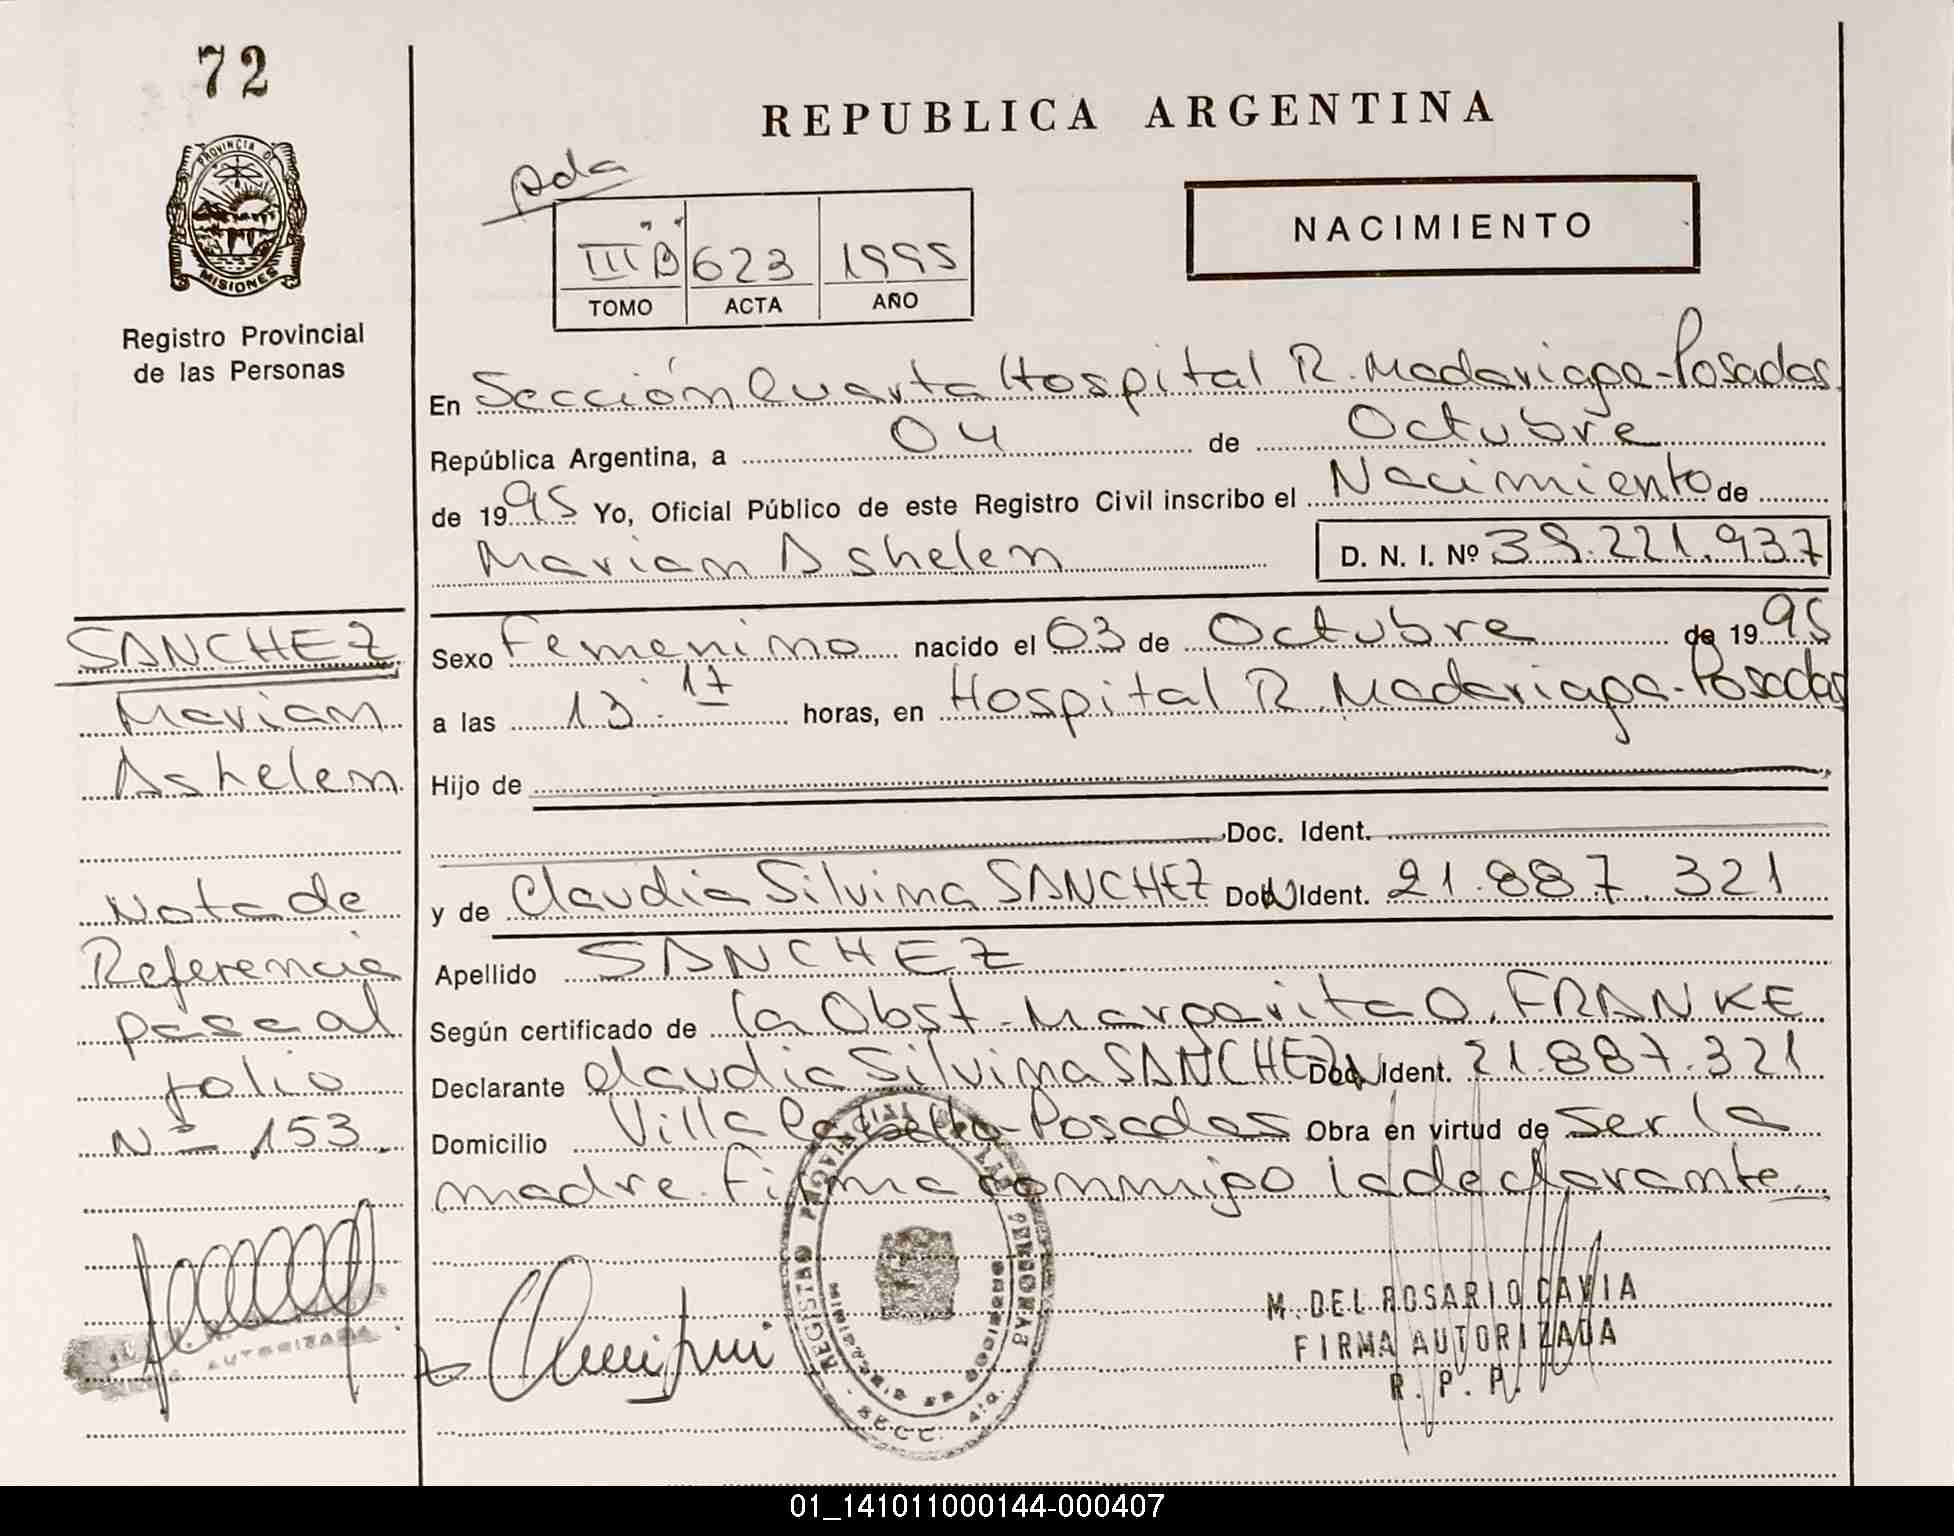 72
REPUBLICA ARGENTINA
PROVINCIA DE
MISIONES
Registro Provincial
de las Personas
pda
NACIMIENTO
III "B" 623 1995
TOMO ACTA AÑO
En Sección Cuarta Hospital R. Madariaga-Posadas
República Argentina, a 04 de Octubre
de 1995 Yo, Oficial Público de este Registro Civil inscribo el Nacimiento de
Mariam Ashelen D. N. I. Nº 39.221.937
Sexo Femenino nacido el 03 de Octubre de 1995
a las 13:17 horas, en Hospital R. Madariaga-Posadas
Hijo de
Doc. Ident.
y de Claudia Silvina SANCHEZ Doc. Ident. 21.887.321
Apellido SANCHEZ
Según certificado de la Obst. Margarita O. FRANKE
Declarante Claudia Silvina SANCHEZ Doc. Ident. 21.887.321
Domicilio Villa Posadas Obra en virtud de ser la
madre. Firma conmigo la declarante.
SANCHEZ
Mariam
Ashelen
Nota de
Referencia
pasa al
folio
Nº 153
AUTORIZADA
REGISTRO PROVINCIAL DE LAS PERSONAS
SECC. 4ta.
M. DEL ROSARIO CAVIA
FIRMA AUTORIZADA
R. P. P.
01_141011000144-000407